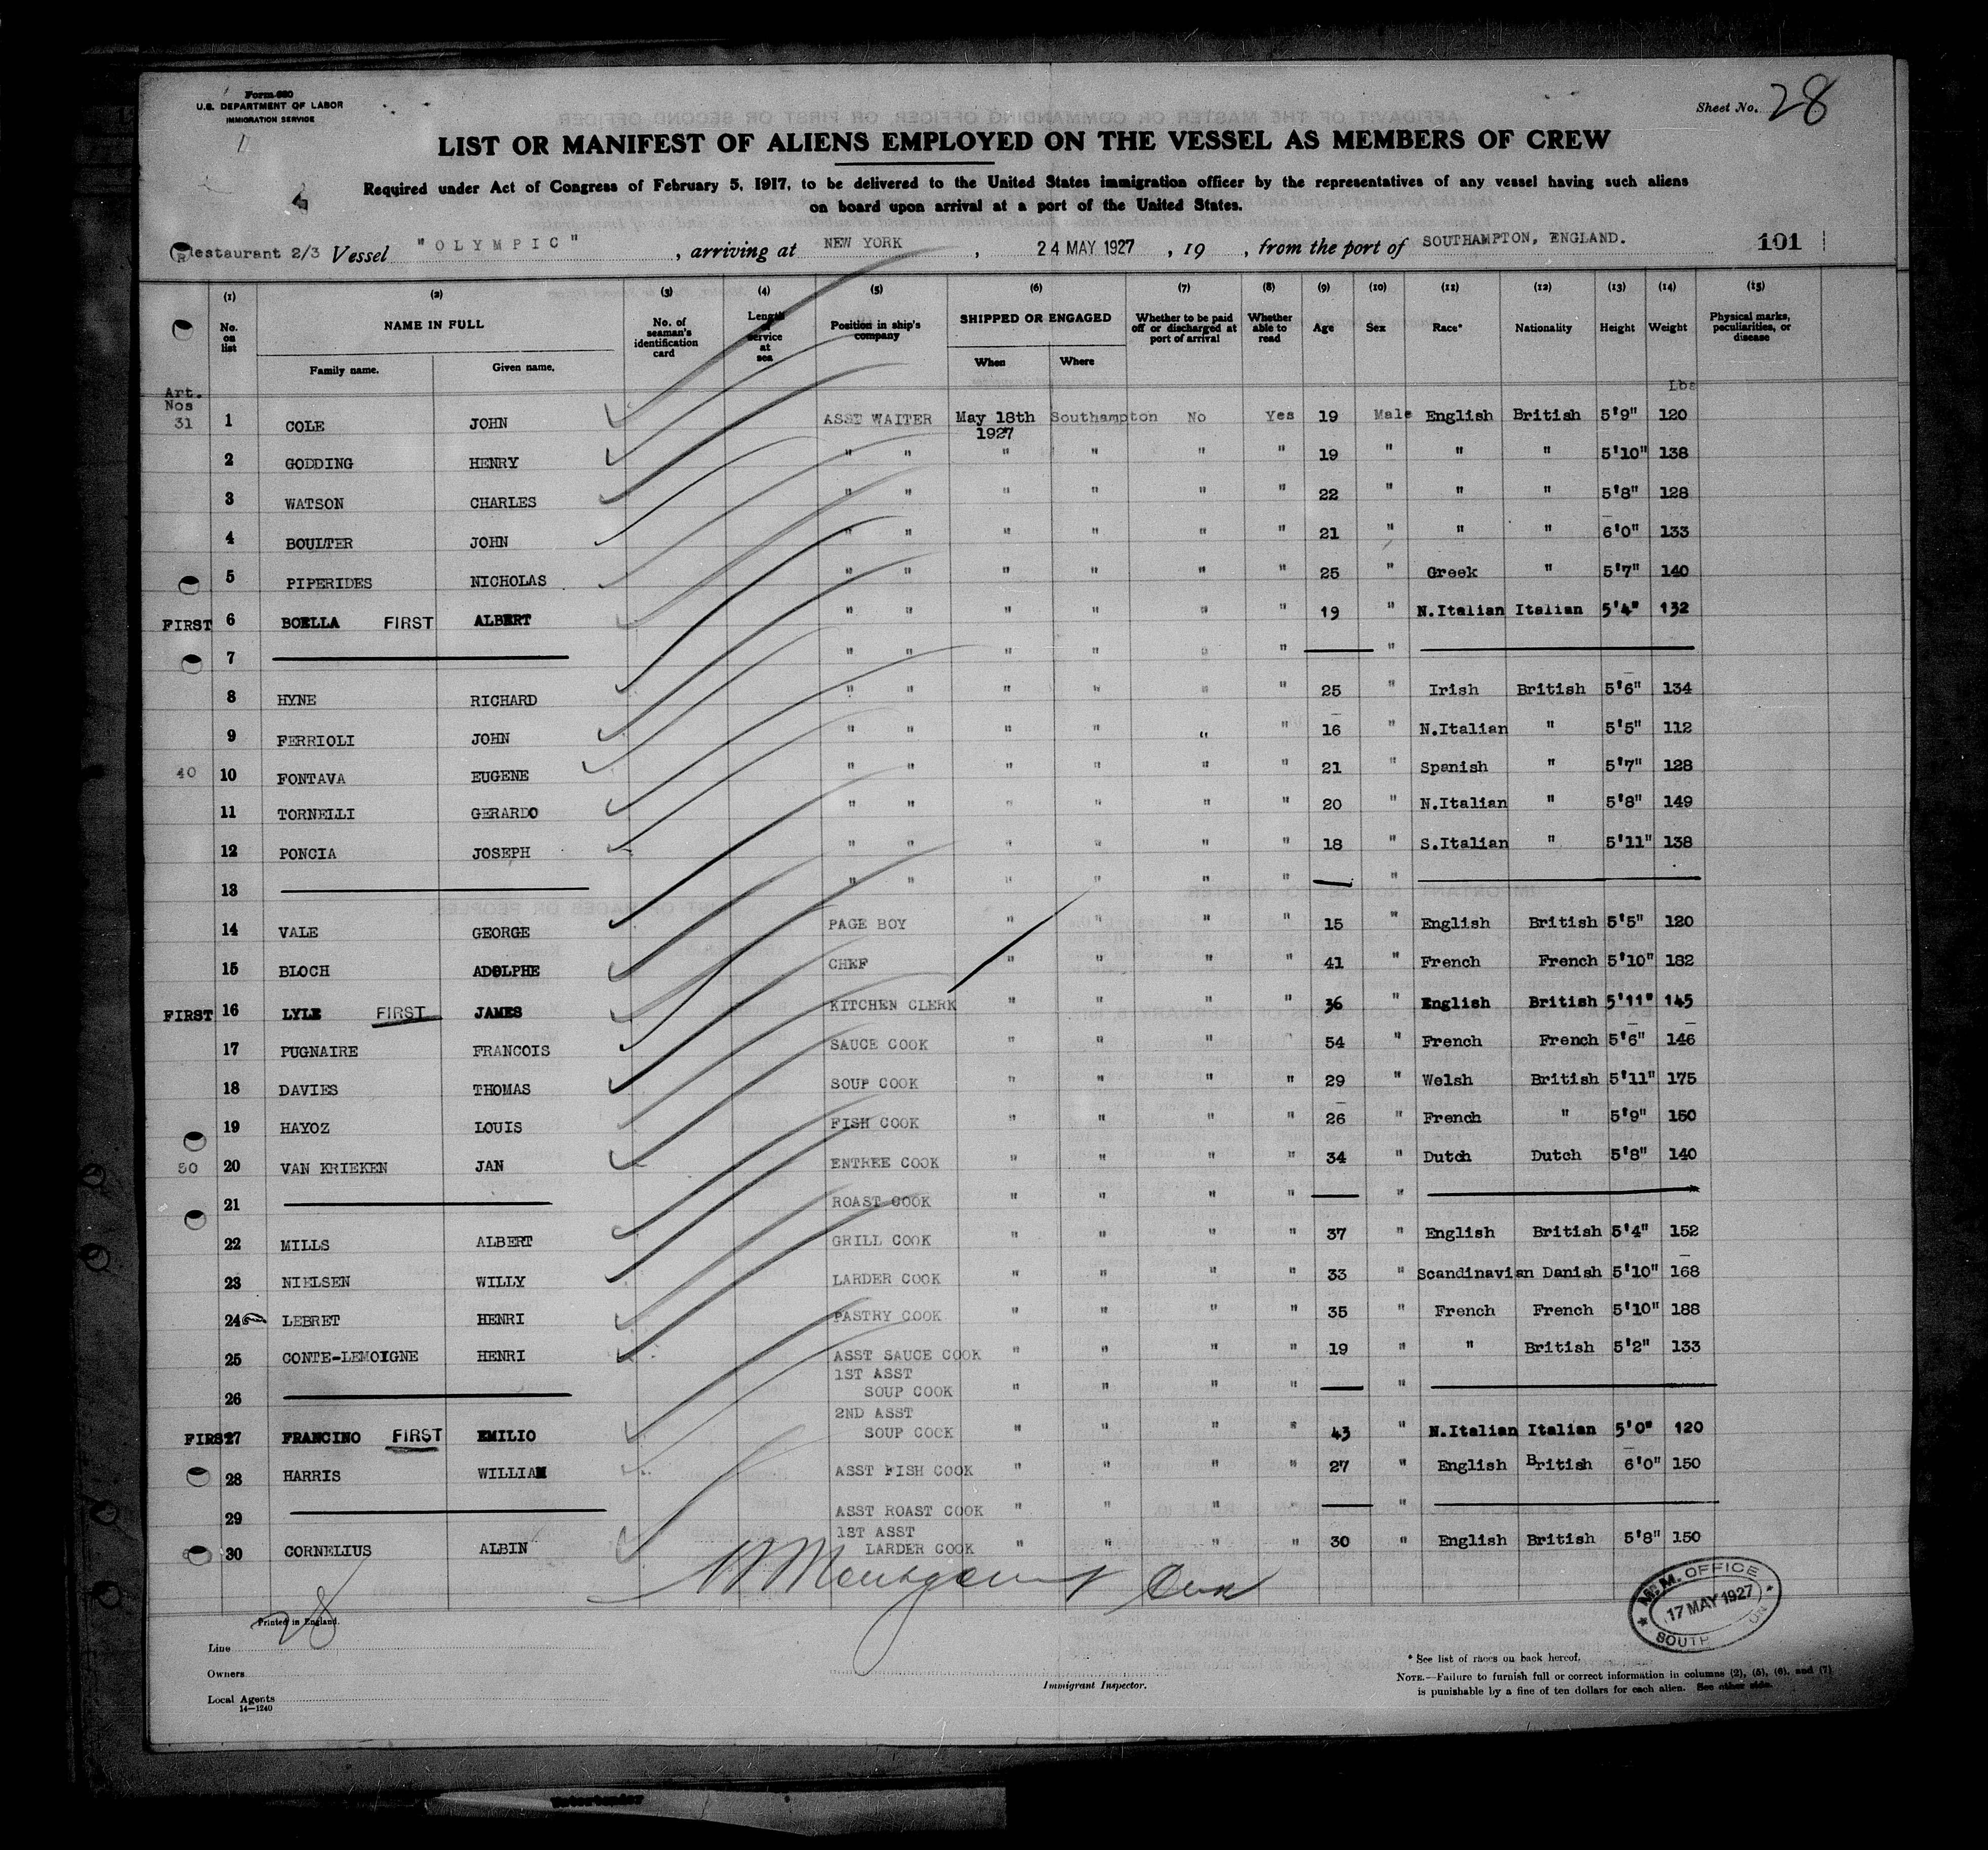 Form 680
U.S. DEPARTMENT OF LABOR
IMMIGRATION SERVICE
Sheet No. 28
LIST OR MANIFEST OF ALIENS EMPLOYED ON THE VESSEL AS MEMBERS OF CREW
Required under Act of Congress of February 5, 1917, to be delivered to the United States immigration officer by the representatives of any vessel having such aliens
on board upon arrival at a port of the United States.
Restaurant 2/3 Vessel "OLYMPIC", arriving at NEW YORK, 24 MAY 1927, 19 , from the port of SOUTHAMPTON, ENGLAND. 101
(1) (2) (3) (4) (5) (6) (7) (8) (9) (10) (11) (12) (13) (14) (15)
No. on list NAME IN FULL Family name. Given name. No. of seaman's identification card Length of service at sea Position in ship's company SHIPPED OR ENGAGED When Where Whether to be paid off or discharged at port of arrival Whether able to read Age Sex Race* Nationality Height Weight Physical marks, peculiarities, or disease
Art. Nos Lbs
31 1 COLE JOHN ASST WAITER May 18th 1927 Southampton No Yes 19 Male English British 5'9" 120
2 GODDING HENRY " " " " " " 19 " " " 5'10" 138
3 WATSON CHARLES " " " " " " 22 " " " 5'8" 128
4 BOULTER JOHN " " " " " " 21 " " " 6'0" 133
5 PIPERIDES NICHOLAS " " " " " " 25 " Greek " 5'7" 140
FIRST 6 BOELLA FIRST ALBERT " " " " " " 19 " N.Italian Italian 5'4" 132
7 " " " " " " "
8 HYNE RICHARD " " " " " " 25 " Irish British 5'6" 134
9 FERRIOLI JOHN " " " " " " 16 " N.Italian " 5'5" 112
40 10 FONTAVA EUGENE " " " " " " 21 " Spanish " 5'7" 128
11 TORNELLI GERARDO " " " " " " 20 " N.Italian " 5'8" 149
12 PONCIA JOSEPH " " " " " " 18 " S.Italian " 5'11" 138
13 " " " " " " "
14 VALE GEORGE PAGE BOY " " " " 15 " English British 5'5" 120
15 BLOCH ADOLPHE CHEF " " " " 41 " French French 5'10" 182
FIRST 16 LYLE FIRST JAMES KITCHEN CLERK " " " " 36 " English British 5'11" 145
17 PUGNAIRE FRANCOIS SAUCE COOK " " " " 54 " French French 5'6" 146
18 DAVIES THOMAS SOUP COOK " " " " 29 " Welsh British 5'11" 175
19 HAYOZ LOUIS FISH COOK " " " " 26 " French " 5'9" 150
50 20 VAN KRIEKEN JAN ENTREE COOK " " " " 34 " Dutch Dutch 5'8" 140
21 ROAST COOK " " " " "
22 MILLS ALBERT GRILL COOK " " " " 37 " English British 5'4" 152
23 NIELSEN WILLY LARDER COOK " " " " 33 " Scandinavian Danish 5'10" 168
24 LEBRET HENRI PASTRY COOK " " " " 35 " French French 5'10" 188
25 CONTE-LEMOIGNE HENRI ASST SAUCE COOK " " " " 19 " " British 5'2" 133
26 1ST ASST SOUP COOK " " " " "
FIRST 27 FRANCINO FIRST EMILIO 2ND ASST SOUP COOK " " " " 43 " N.Italian Italian 5'0" 120
28 HARRIS WILLIAM ASST FISH COOK " " " " 27 " English British 6'0" 150
29 ASST ROAST COOK " " " " "
30 CORNELIUS ALBIN 1ST ASST LARDER COOK " " " " 30 " English British 5'8" 150
M.M. OFFICE
17 MAY 1927
SOUTH
28
Printed in England.
Line
Owners
Local Agents
14—1240
Immigrant Inspector.
* See list of races on back hereof.
NOTE.—Failure to furnish full or correct information in columns (2), (5), (6), and (7)
is punishable by a fine of ten dollars for each alien. See other side.